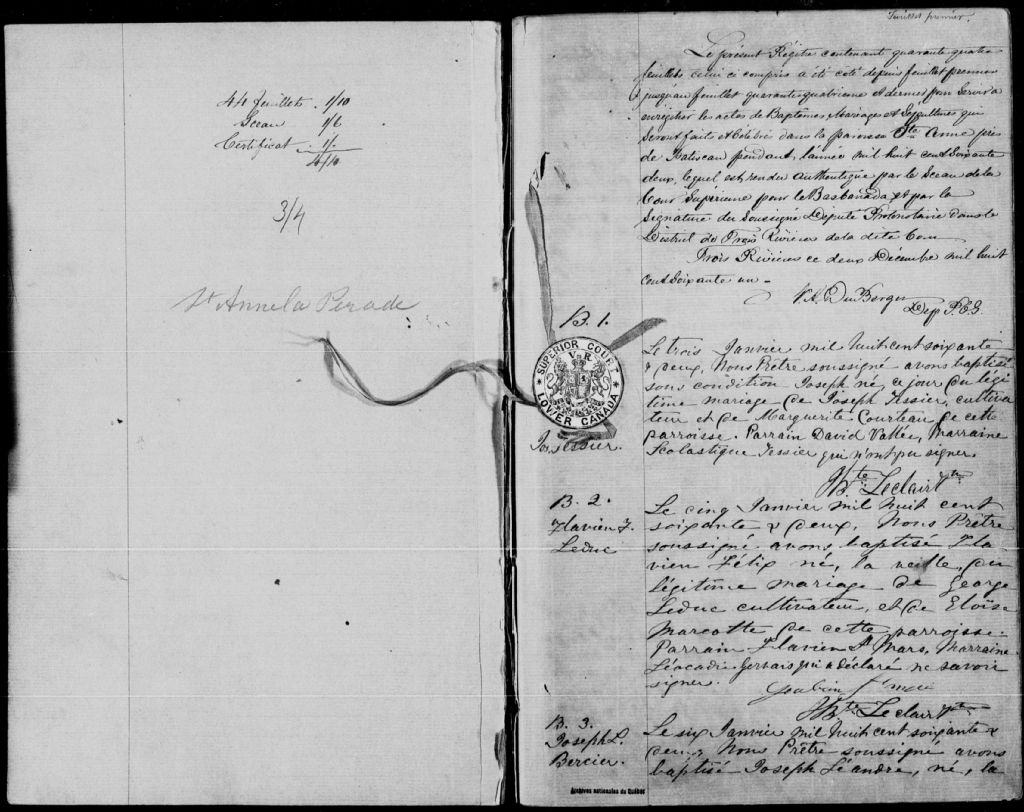 44 feuillets . 1/10
Sceau 1/6
Certificat . 1/.
4/10
3/4
St Anne la Perade
Feuillet premier.
Le présent Régitre contenant quarante quatre
feuillets celui ci compris a été coté depuis feuillet premier
jusqu'au feuillet quarante quatrieme et dernier pour servir a
enregistrer les actes de Baptêmes Mariages et Sépultures qui
seront faits et célébrés dans la paroisse Ste Anne près
de Batiscan pendant l'année mil huit cent soixante
deux, lequel est rendu authentique par le Sceau de la
Cour Supérieure pour le Bas Canada et par la
Signature du Soussigné Député Protonotaire dans le
District de Trois Rivières de la dite Cour
Trois Rivières ce deux Décembre mil huit
cent soixante un -
Dep P.C.S
B. 1.
SUPERIOR COURT
V R
LOWER CANADA
Jos. Tessier.
Le trois Janvier mil huit cent soixante
& deux, Nous Prêtre soussigné avons baptisé
sous condition Joseph né, ce jour du légi
time mariage de Joseph Tessier, cultiva
teur et de Marguerite Courteau de cette
parroisse. Parrain David Vallée, Marraine
Scolastique Tessier qui n'ont pu signer.
Leclair Ptre
B. 2.
Flavien F.
Leduc
Le cinq Janvier mil huit cent
soixante & deux, Nous Prêtre
soussigné avons baptisé Fla
vien Félix né, la veille, du
légitime mariage de George
Leduc cultivateur, et de Eloïse
Marcotte de cette parroisse.
Parrain Flavien St Mars, Marraine
Léocadie Gervais qui a déclaré ne savoir
signer.
Leclair Ptre
B. 3.
Joseph L.
Bercier.
Le six Janvier mil huit cent soixante &
deux, Nous Prêtre soussigné avons
baptisé Joseph Léandre, né, la
Archives nationales du Québec